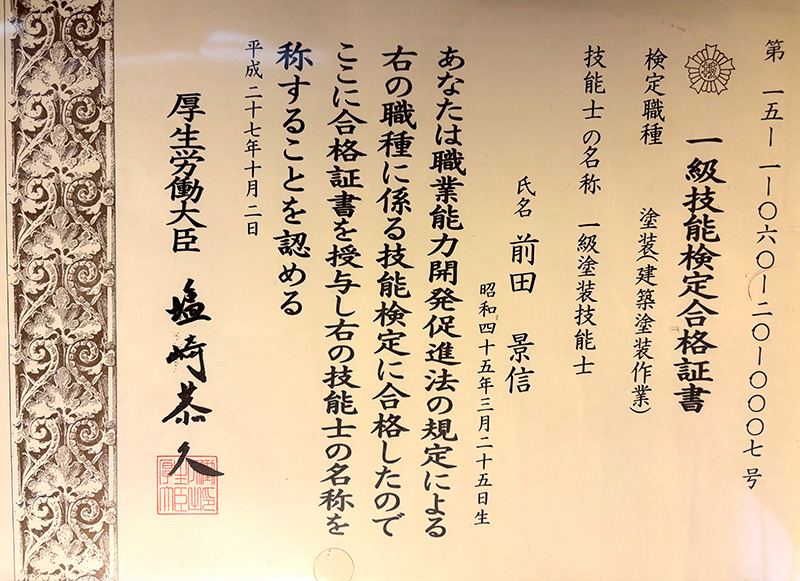 第一五―一―〇六〇―二〇―〇〇〇七号
一級技能検定合格証書
検定職種 塗装(建築塗装作業)
技能士の名称 一級塗装技能士
氏名 前田 景信
昭和四十五年三月二十五日生
あなたは職業能力開発促進法の規定による
右の職種に係る技能検定に合格したので
ここに合格証書を授与し右の技能士の名称を
称することを認める
平成二十七年十月二日
厚生労働大臣 塩崎恭久